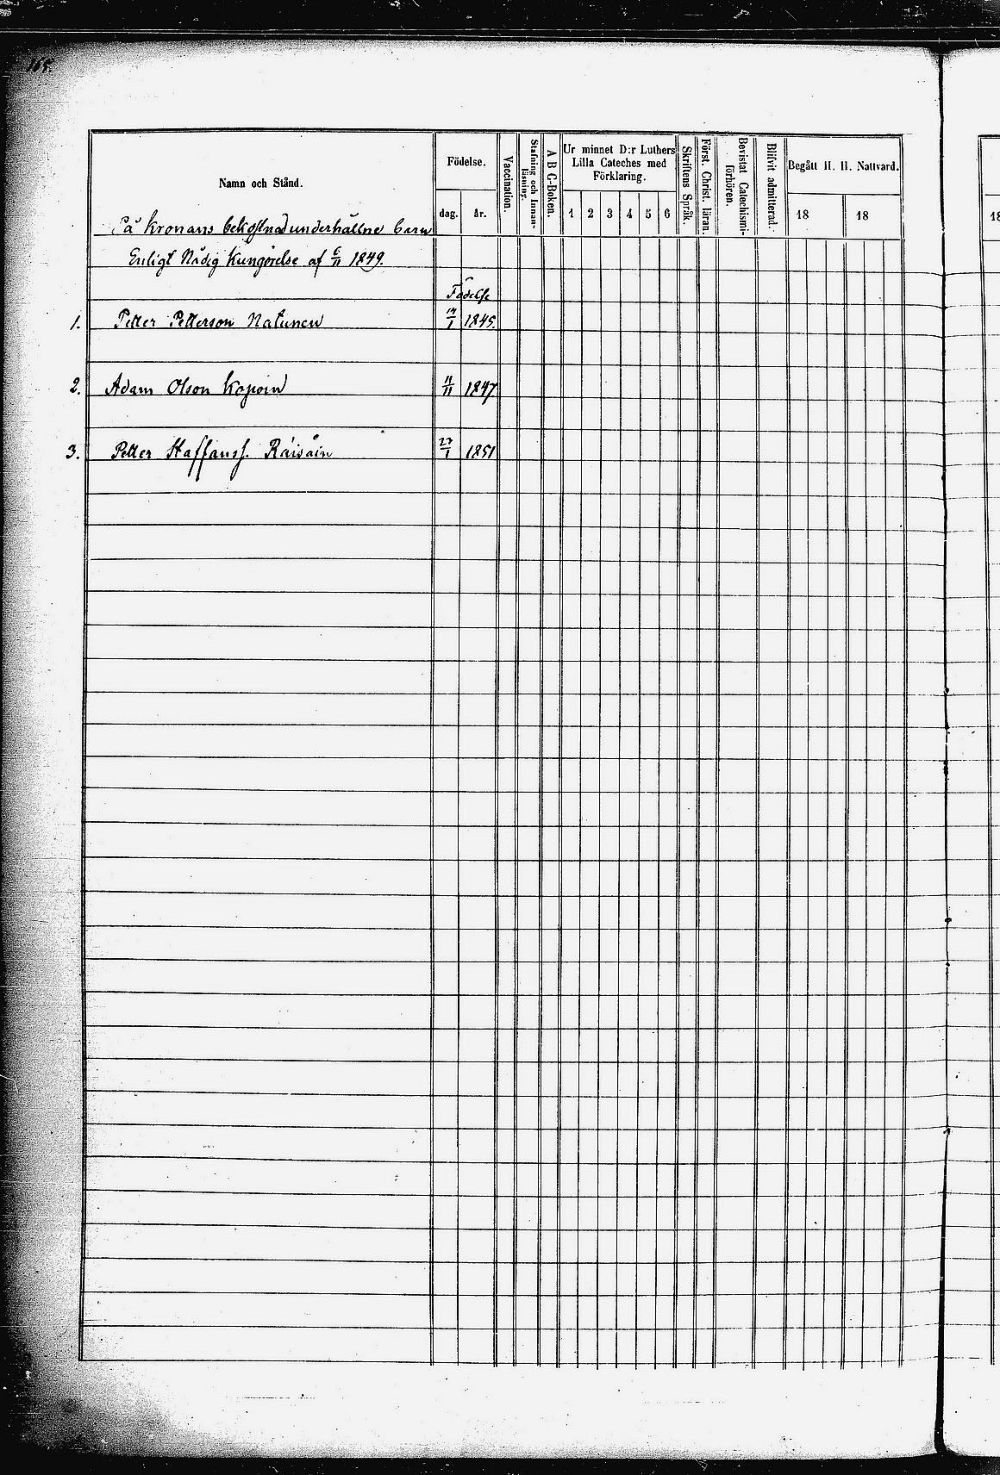 165.
Namn och Stånd.
Födelse.
dag. år.
Vaccination.
Stafning och Innan-läsning.
A B C-Boken.
Ur minnet D:r Luthers
Lilla Cateches med
Förklaring.
1 2 3 4 5 6
Skriftens Språk.
Först. Christ. läran.
Bevistat Catechismi-
förhören.
Blifvit admitterad.
Begått H. H. Nattvard.
18 18
18
På Kronans bekostnad underhållne barn
Enligt Nådig Kungörelse af 6/11 1849.
Födelse
1. Petter Petterson Natunen 14/1 1845.
2. Adam Olson Kopoin 11/11 1847
3. Petter Staffanss. Räisäin 27/1 1851